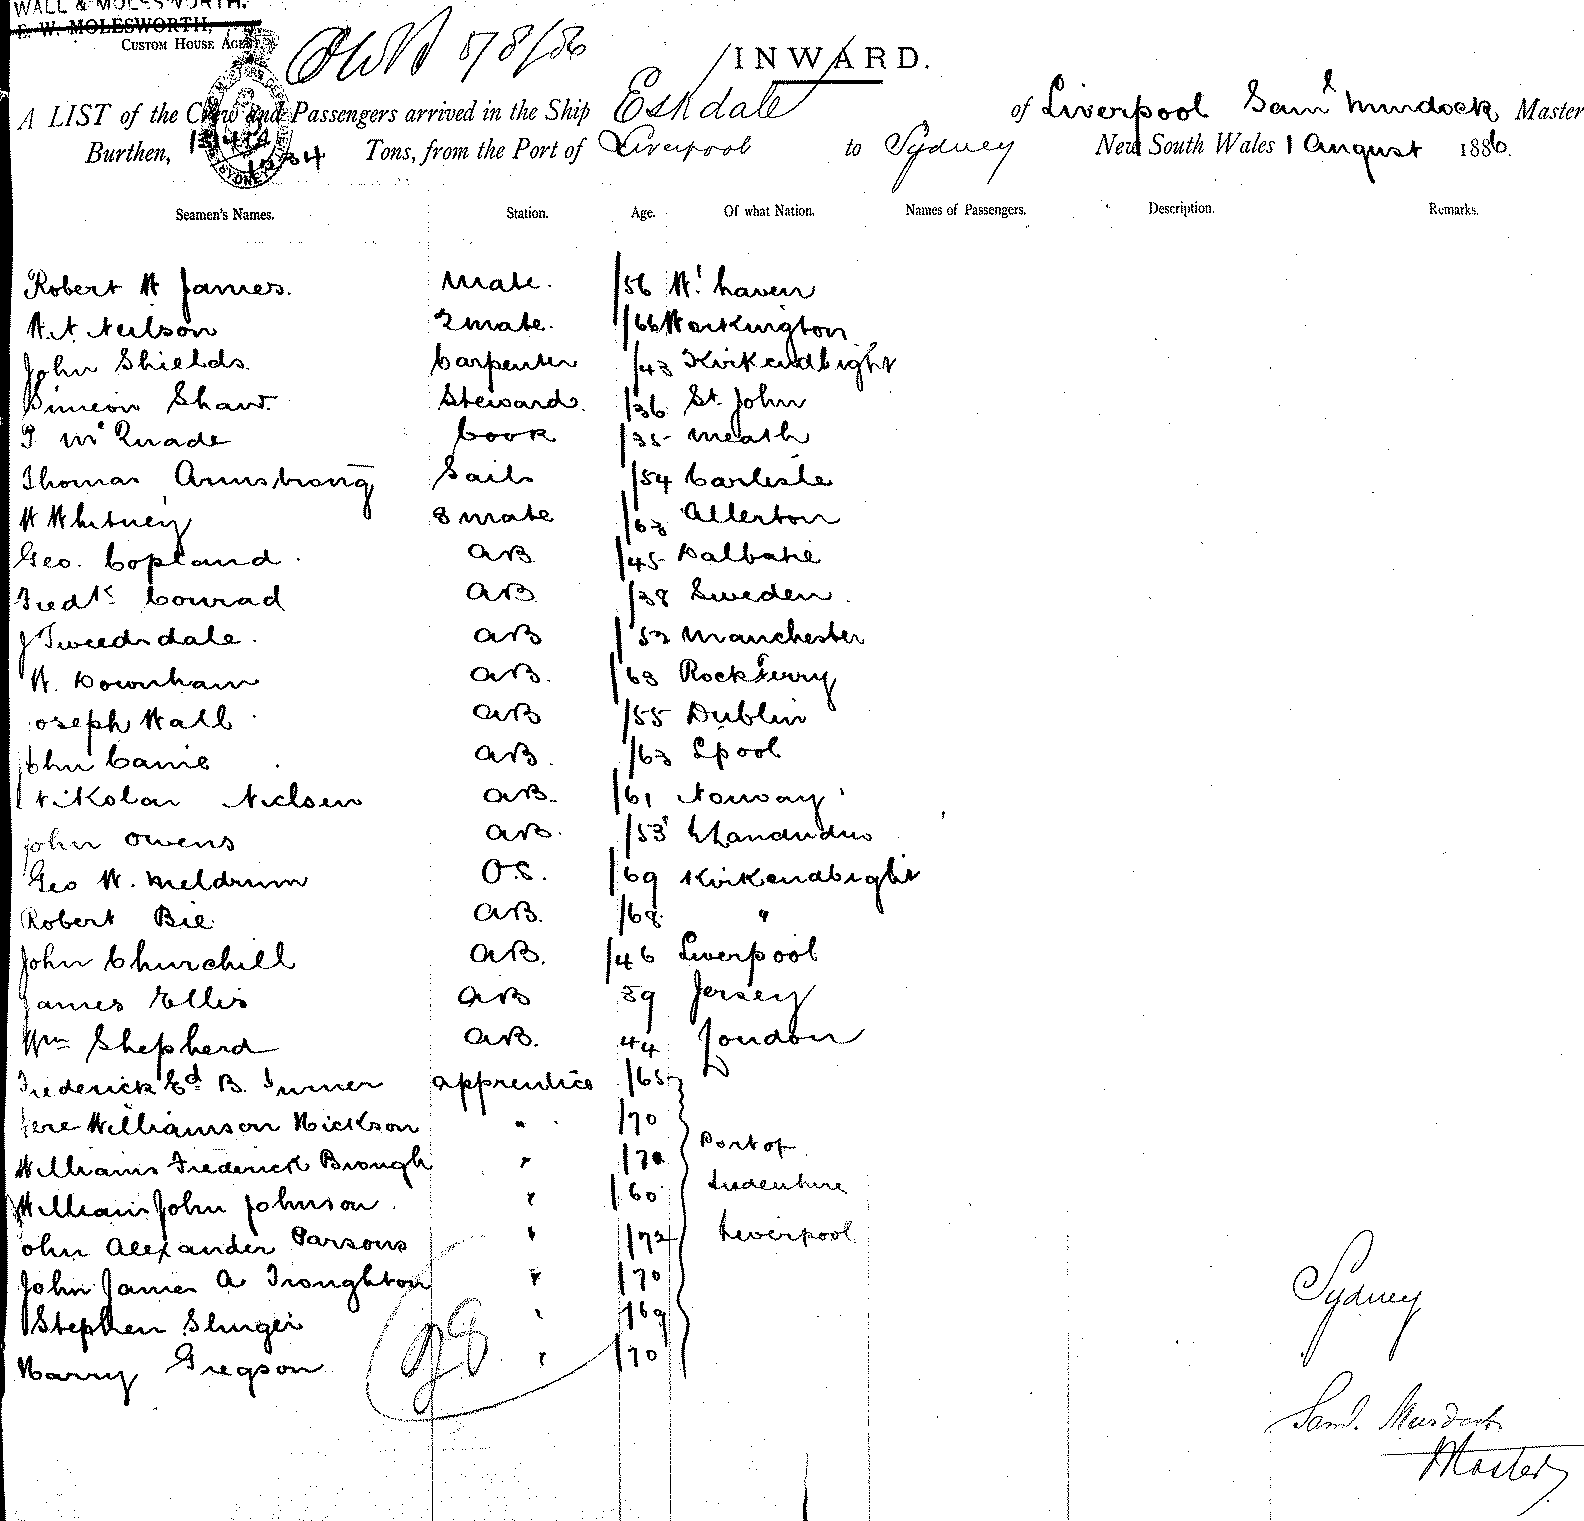 WALL & MOLESWORTH.
E. W. MOLESWORTH,
CUSTOM HOUSE AGENT
5/8/86
INWARD.
A LIST of the Crew and Passengers arrived in the Ship Eskdale of Liverpool Saml Murdock Master
Burthen, 1234 Tons, from the Port of Liverpool to Sydney New South Wales 1 August 1886.
Seamen's Names. Station. Age. Of what Nation. Names of Passengers. Description. Remarks.
Robert H James. Mate. /56 Wt haven
2 mate. /66 Workington
John Shields Carpenter /43 Kirkendbight
Simeon Shaw. Steward. /36 St. John
T McQuade Cook /35 Meath
Thomas Armstrong Sails /54 Carlisle
W Whitney 3 mate /63 Allerton
Geo. Copland AB /45 Dalbatie
Fredk Conrad AB /38 Sweden.
J Tweedsdale. AB /52 Manchester
W. Downham AB. /63 Rock Ferry
Joseph Wall AB /55 Dublin
John AB. /63 Lpool
Nikolai Nielsen AB. /61 Norway
John Owens AB. /53 Llandudno
Geo W. Meldrum O.S. /69 Kirkendbight
Robert Bie AB. /68 "
John Churchill AB. /46 Liverpool
James Ellis AB 39 Jersey
Wm Shepherd AB. 44 London
Frederick Ed B. Turner apprentice /65
Williamson Hickson " /70
Williams Frederick Brough " /70 Port of
William John Johnson " /60 Indenture
John Alexander Parsons " /72 Liverpool
John James A Troughton " /70
Stephen " /69
Harry Gregson " /70
28
Sydney
Saml. Murdock
Master